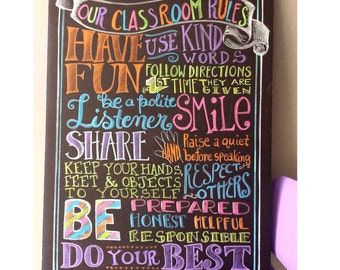 OUR CLASSROOM RULES
HAVE FUN
USE KIND WORDS
FOLLOW DIRECTIONS
1ST TIME THEY ARE GIVEN
be a polite Listener
SMILE
SHARE
Raise a quiet HAND before speaking
KEEP YOUR HANDS
FEET & OBJECTS
TO YOURSELF
RESPECT OTHERS
BE
PREPARED
HONEST HELPFUL
RESPONSIBLE
DO YOUR BEST